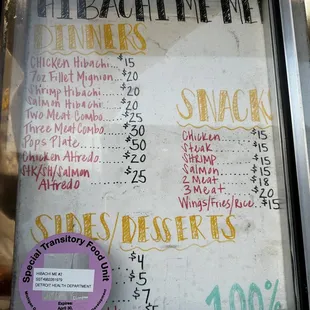 HIBACHI ME ME
DINNERS
CHICKEN Hibachi...$15
7oz Fillet Mignon..$20
Shrimp Hibachi...$20
Salmon Hibachi...$20
Two Meat Combo..$25
Three Meat Combo..$30
Pops Plate.....$50
Chicken Alfredo..$20
Stk/SH/Salmon Alfredo....$25
SNACK
Chicken......$15
Steak.......$15
SHRIMP......$15
Salmon.....$15
2 Meat......$18
3 Meat......20
Wings/Fries/Rice..$15
SIDES/DESSERTS
$4
$5
$7
100%
Special Transitory Food Unit
HIBACHI ME #3
DETROIT HEALTH DEPARTMENT
Expires: